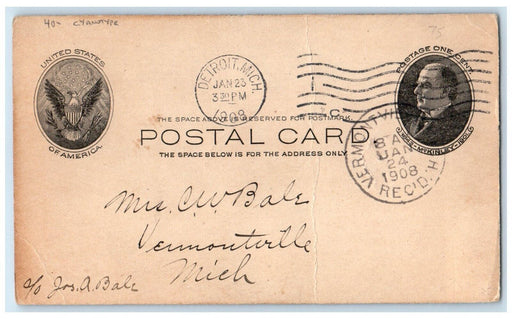 40- CYANOTYPE
75
UNITED STATES
OF AMERICA
DETROIT, MICH.
JAN 23
3 30 PM
1908
POSTAGE ONE CENT
1843-McKINLEY-1901
THE SPACE ABOVE IS RESERVED FOR POSTMARK.
POSTAL CARD
THE SPACE BELOW IS FOR THE ADDRESS ONLY.
VERMONTVILLE
8 A
JAN
24
1908
REC'D.
Mrs. C. W. Bale
Vermontville
Mich
c/o Jos. A. Bale